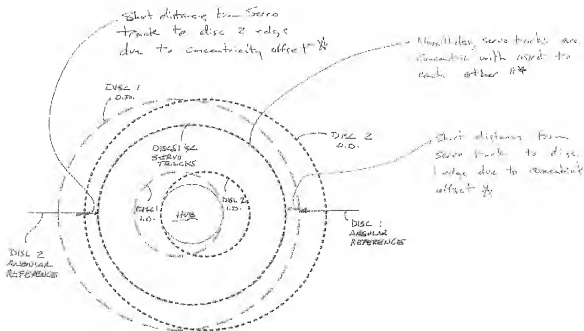 Short distance from Servo
track to disc 2 edge
due to concentricity offset
Nonetheless, servo tracks are
concentric with respect to
each other
DISC 1
O.D.
DISCS 1 & 2
SERVO
TRACKS
DISC 2
O.D.
Short distance from
servo track to disc
1 edge due to concentricity
offset
DISC 1
I.D.
HUB
DISC 2
I.D.
DISC 2
ANGULAR
REFERENCE
DISC 1
ANGULAR
REFERENCE